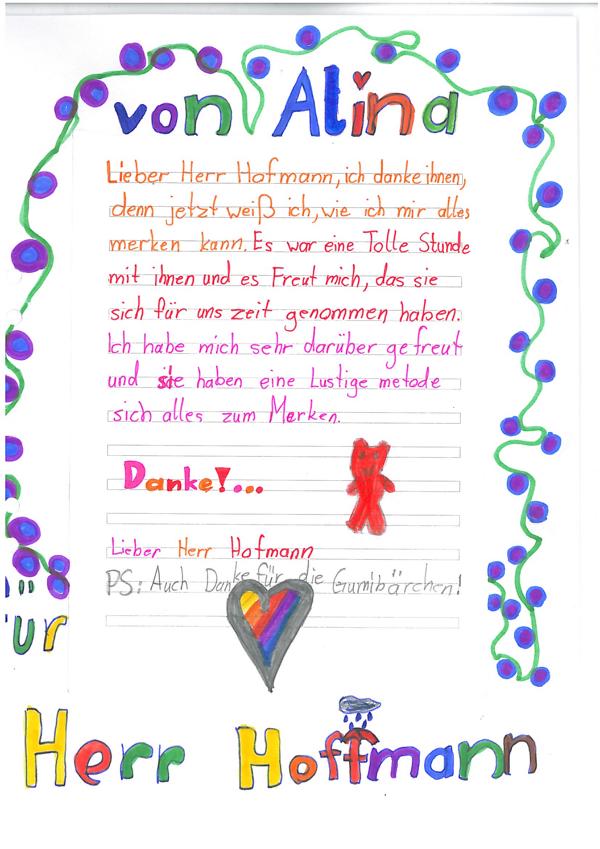 von Alina
Lieber Herr Hofmann, ich danke ihnen,
denn jetzt weiß ich, wie ich mir alles
merken kann. Es war eine Tolle Stunde
mit ihnen und es Freut mich, das sie
sich für uns zeit genommen haben.
Ich habe mich sehr darüber gefreut
und sie haben eine Lustige metode
sich alles zum Merken.
Danke!...
Lieber Herr Hofmann
PS: Auch Danke für die Gumibärchen!
für
Herr Hoffmann